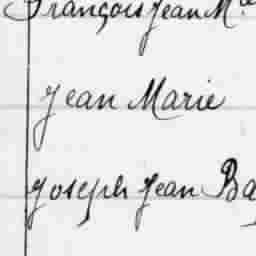 François Jean M.ie
Jean Marie
Joseph Jean Ba